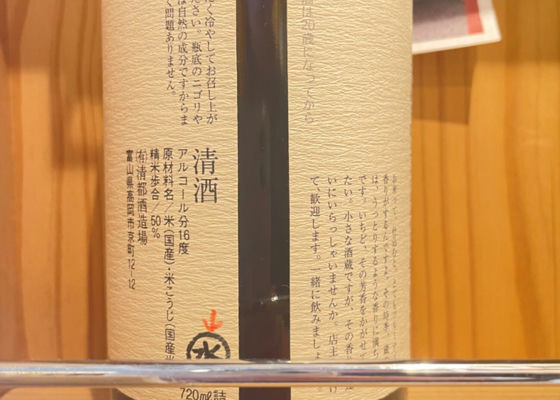 は20歳になってから
香りがするんですよ。その時季、蔵
は、うっとりするような香りに満ち
です。いちど、その芳香をかがせ
たい。小さな酒蔵ですが、その香
いにいらっしゃいませんか。店主
て、歓迎します。一緒に飲みましょ
く冷やしてお召し上が
ださい。瓶底のニゴリや
は自然の成分ですからま
く問題ありません。
清酒
アルコール分16度
原材料名/米(国産)・米こうじ(国産米
精米歩合/50%
(有)清都酒造場
富山県高岡市京町12-12
水
720ml詰